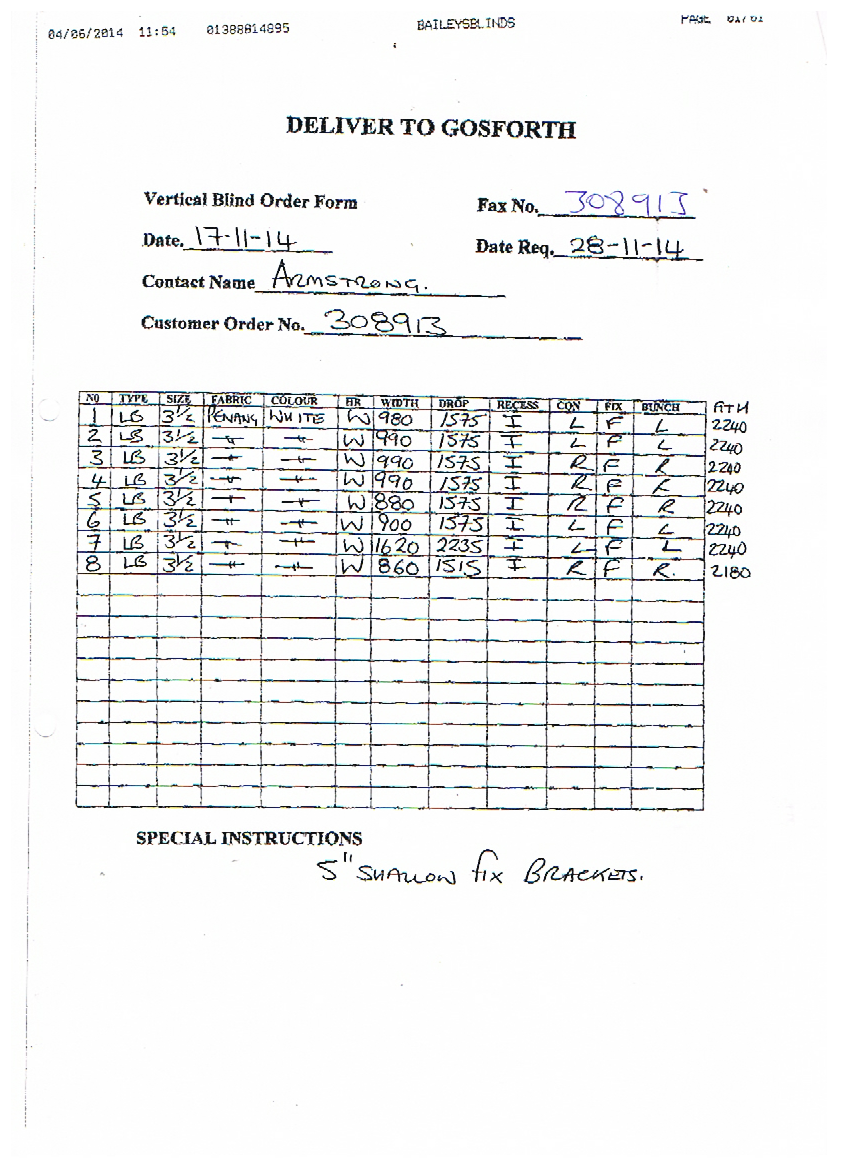 04/06/2014 11:54 01388814895 BAILEYSBLINDS PAGE 01/01
DELIVER TO GOSFORTH
Vertical Blind Order Form Fax No. 308913
Date. 17-11-14 Date Req. 28-11-14
Contact Name ARMSTRONG.
Customer Order No. 308913
NO TYPE SIZE FABRIC COLOUR HR WIDTH DROP RECESS CON FIX BUNCH ATH
1 LB 3½ PENANG WHITE W 980 1575 I L F L 2240
2 LB 3½ -"- -"- W 990 1575 I L F L 2240
3 LB 3½ -"- -"- W 990 1575 I R F R 2240
4 LB 3½ -"- -"- W 990 1575 I R F R 2240
5 LB 3½ -"- -"- W 880 1575 I R F R 2240
6 LB 3½ -"- -"- W 900 1575 I L F L 2240
7 LB 3½ -"- -"- W 1620 2235 I L F L 2240
8 LB 3½ -"- -"- W 860 1515 I R F R. 2180
SPECIAL INSTRUCTIONS
5" SHALLOW fix BRACKETS.